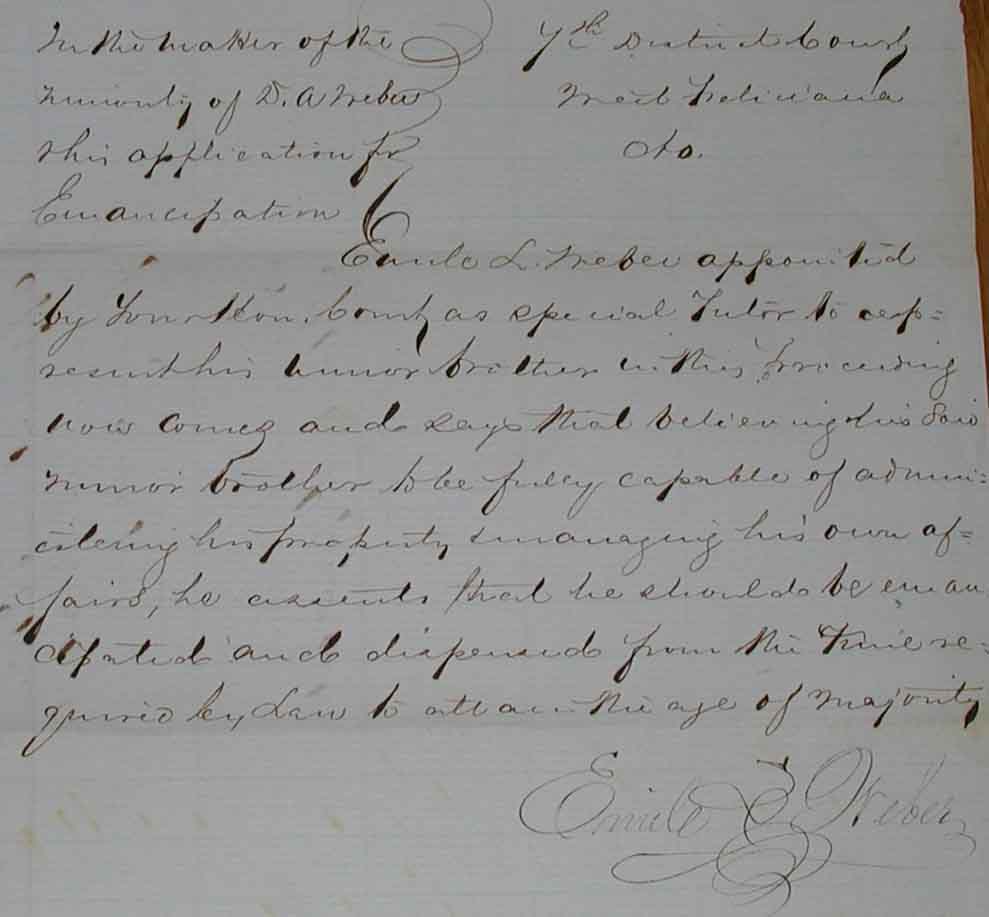 In the matter of the
minority of D. A. Weber
& his application for
Emancipation
7th District Court
West Feliciana
La.
Emile L. Weber appointed
by Your Hon. Court, as special Tutor to rep=
resent his minor brother in this proceeding
now comes and says that believing his said
minor brother to be fully capable of admin=
istering his property & managing his own af=
fairs, he assents that he should be eman
cipated and dispensed from the time re=
quired by Law to attain the age of majority
Emile L. Weber